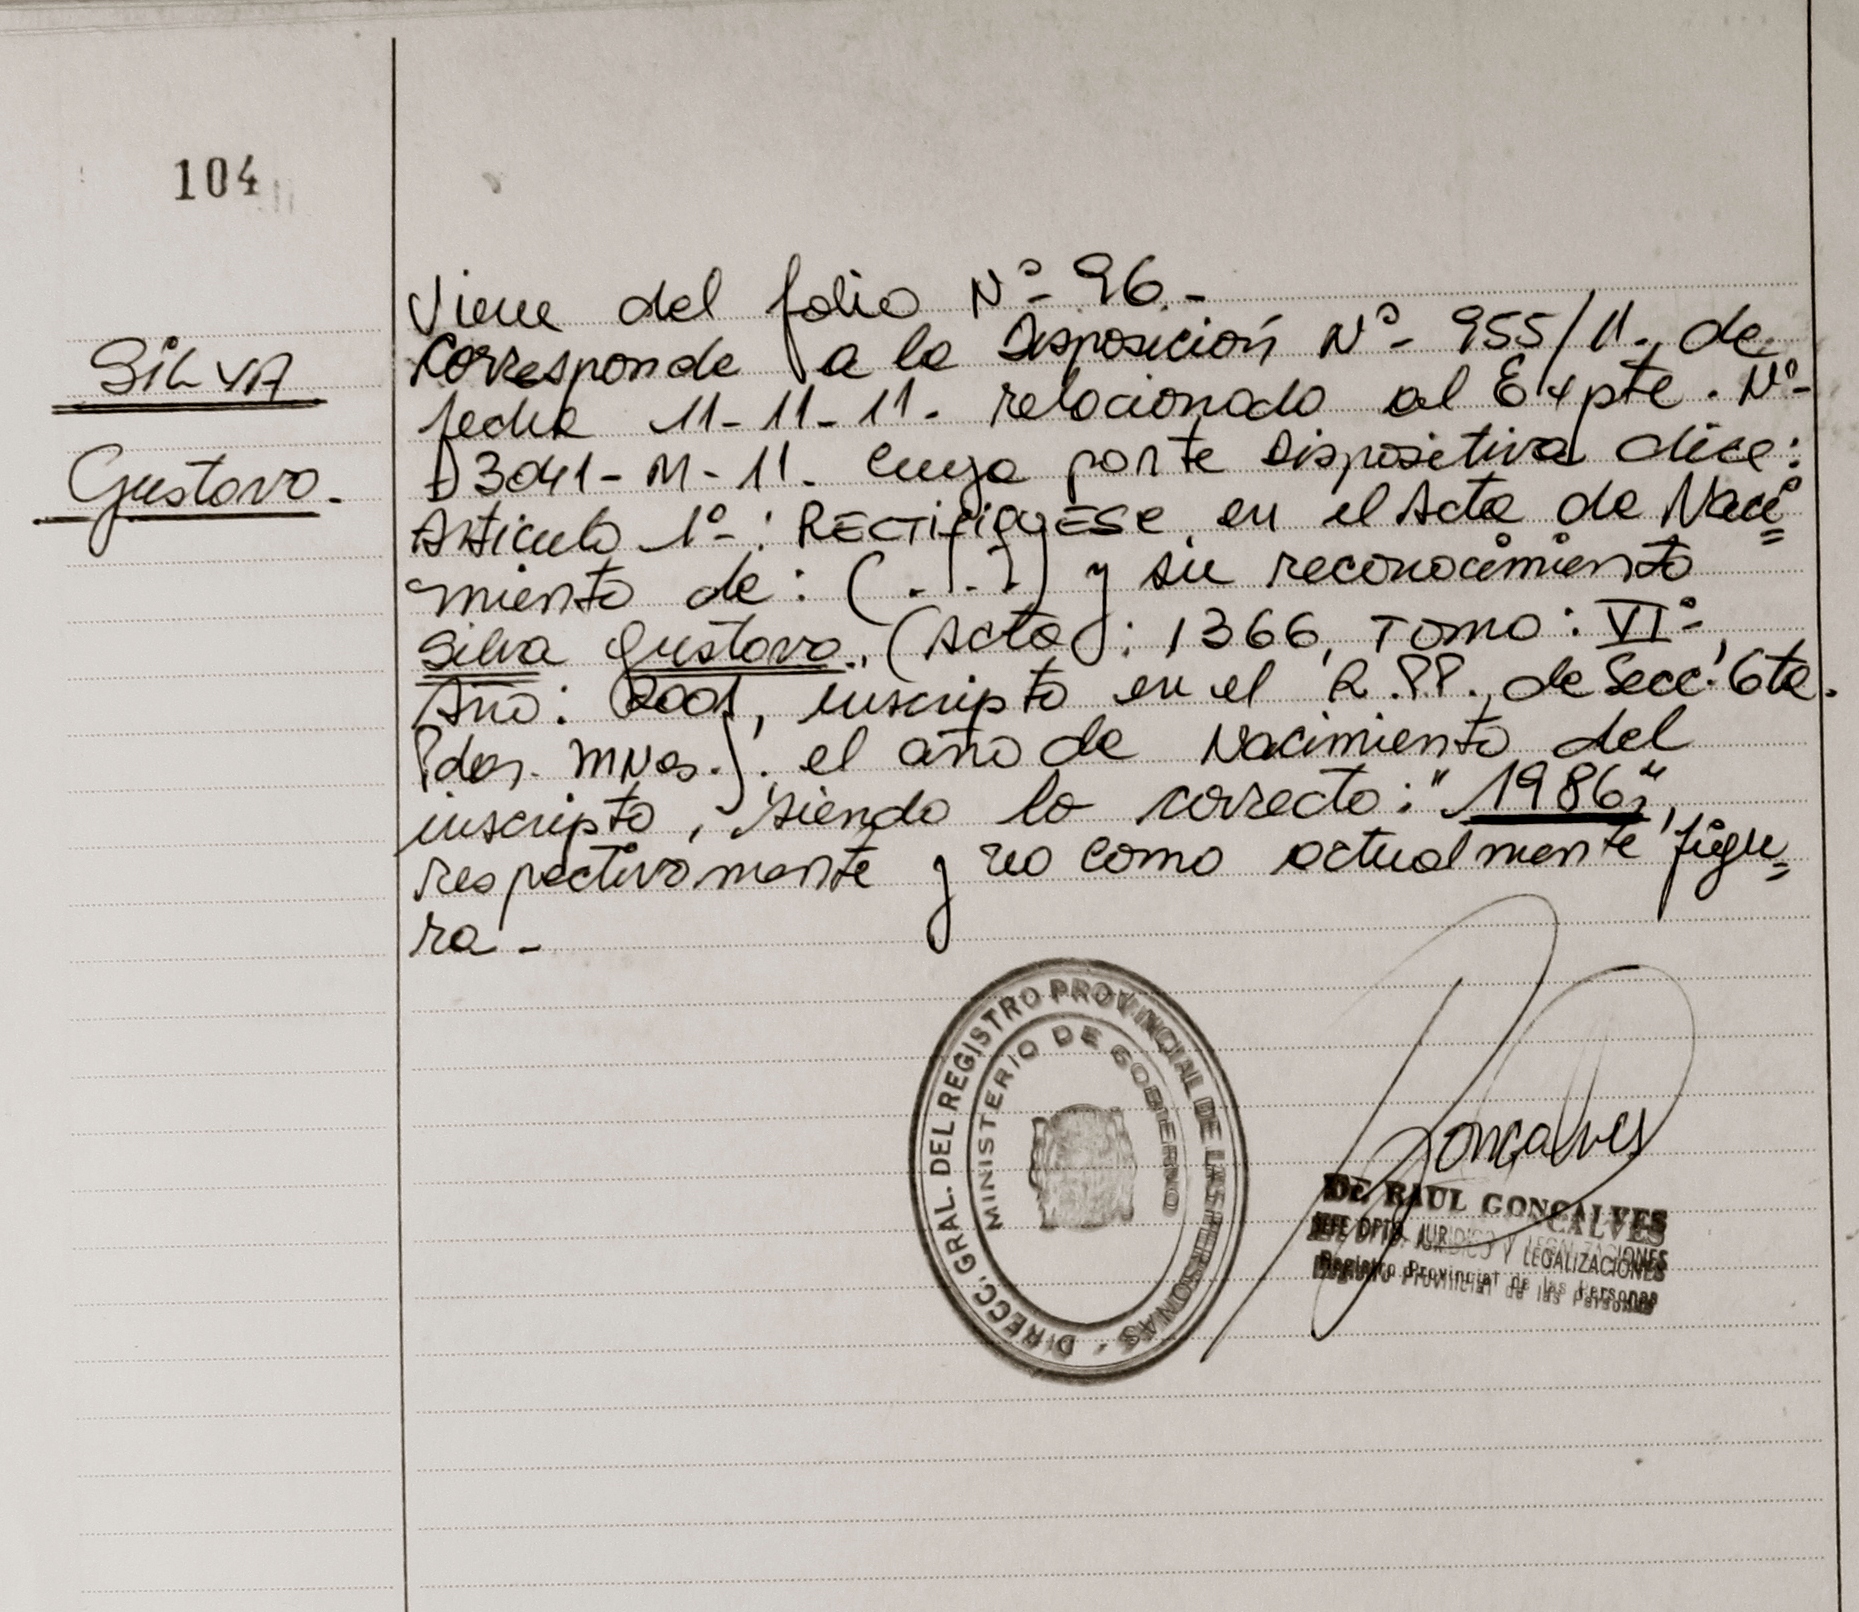 104
SILVA
Gustavo.
Viene del folio Nº 96.-
Corresponde a la Disposición Nº 955/11., de
fecha 11-11-11. relacionado al Expte. Nº
D3041-M-11. cuya parte Dispositiva dice:
Artículo 1º: RECTIFIQUESE, en el Acta de Naci=
miento de: (...) y su reconocimiento
Silva Gustavo., (Acta: 1366, Tomo: VIº,
Año: 2001, inscripto en el R.PP., de Secc. 6ta.
Pdas. MNes.). el año de Nacimiento del
inscripto, siendo lo correcto: "1986",
respectivamente y no como actualmente figu=
ra.-
DIRECC. GRAL. DEL REGISTRO PROVINCIAL DE LAS PERSONAS
MINISTERIO DE GOBIERNO
Goncalves
Dr. RAUL GONCALVES
JEFE DPTO. JURIDICO Y LEGALIZACIONES
Registro Provincial de las Personas